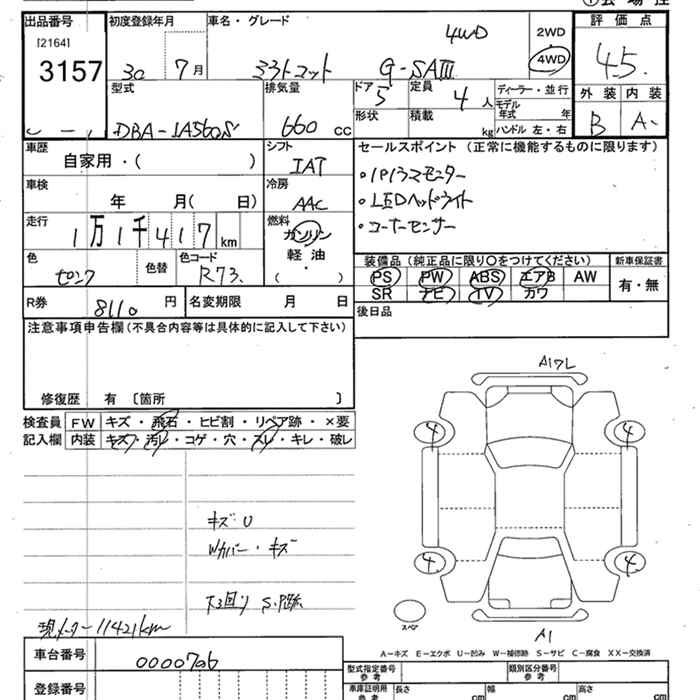 出品番号 初度登録年月 車名・グレード 評価点
[2164] 4WD 2WD
3157 30 7月 ミラトコット G-SAⅢ 4WD 4.5
型式 排気量 ドア 定員 ディーラー・並行 外装 内装
5 4人 モデル年式 年
DBA-LA560S 660 cc 形状 積載 kg ハンドル 左・右 B A-
車歴 シフト セールスポイント (正常に機能するものに限ります)
自家用・( ) IAT
車検 冷房 ・LEDヘッドライト
年 月( 日) AAC
走行 燃料 ・コーナーセンサー
1万1千417km ガソリン
色 色替 色コード 軽油 装備品 (純正品に限り○をつけてください) 新車保証書
ピンク R73 ( ・ ) PS PW ABS エアB AW 有・無
SR ナビ TV カワ
R券 8110円 名変期限 月 日 後日品
注意事項申告欄(不具合内容等は具体的に記入して下さい)
修復歴 有 〔箇所 〕
検査員 FW キズ・飛石・ヒビ割・リペア跡・×要
記入欄 内装 キズ・汚レ・コゲ・穴・スレ・キレ・破レ
キズ U
Wカバー・キズ
下回り S.P跡
現メーター11421km
A1
4 4
4 4
スペア
A1
A-キズ E-エクボ U-凹み W-補修跡 S-サビ C-腐食 XX-交換済
車台番号 0000706
登録番号
型式指定番号 参考 類別区分番号 参考
車庫証明用 参考 長さ cm 幅 cm 高さ cm